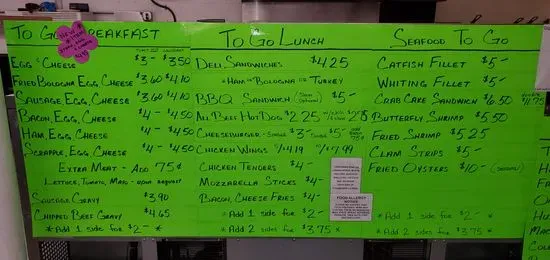 To Go Breakfast
Egg & Cheese $3- $3.50
Fried Bologna Egg, Cheese $3.60 $4.10
Sausage Egg, Cheese $3.60 $4.10
Bacon, Egg, Cheese $4- $4.50
Ham, Egg, Cheese $4- $4.50
Scrapple, Egg, Cheese $4- $4.50
Extra Meat - Add 75¢
Lettuce, Tomato, Mayo - upon request
Sausage Gravy $3.90
Chipped Beef Gravy $4.65
*Add 1 side for $2- *
To Go Lunch
Deli Sandwiches $4.25
*Ham or Bologna or Turkey
BBQ Sandwich $5-
All Beef Hot Dog $2.25
Cheeseburger - Single $3- Double $5- 75¢
Chicken Wings $4.19 $7.99
Chicken Tenders $4-
Mozzarella Sticks $4-
Bacon, Cheese Fries $4-
*Add 1 side for $2-
*Add 2 sides for $3.75 *
FOOD ALLERGY
NOTICE
Seafood To Go
Catfish Fillet $5-
Whiting Fillet $5-
Crab Cake Sandwich $6.50 $11.75
Butterfly Shrimp $5.50
Fried Shrimp $5.25
Clam Strips $5-
Fried Oysters $10- (Seasonal)
*Add 1 side for $2-
*Add 2 sides for $3.75 *